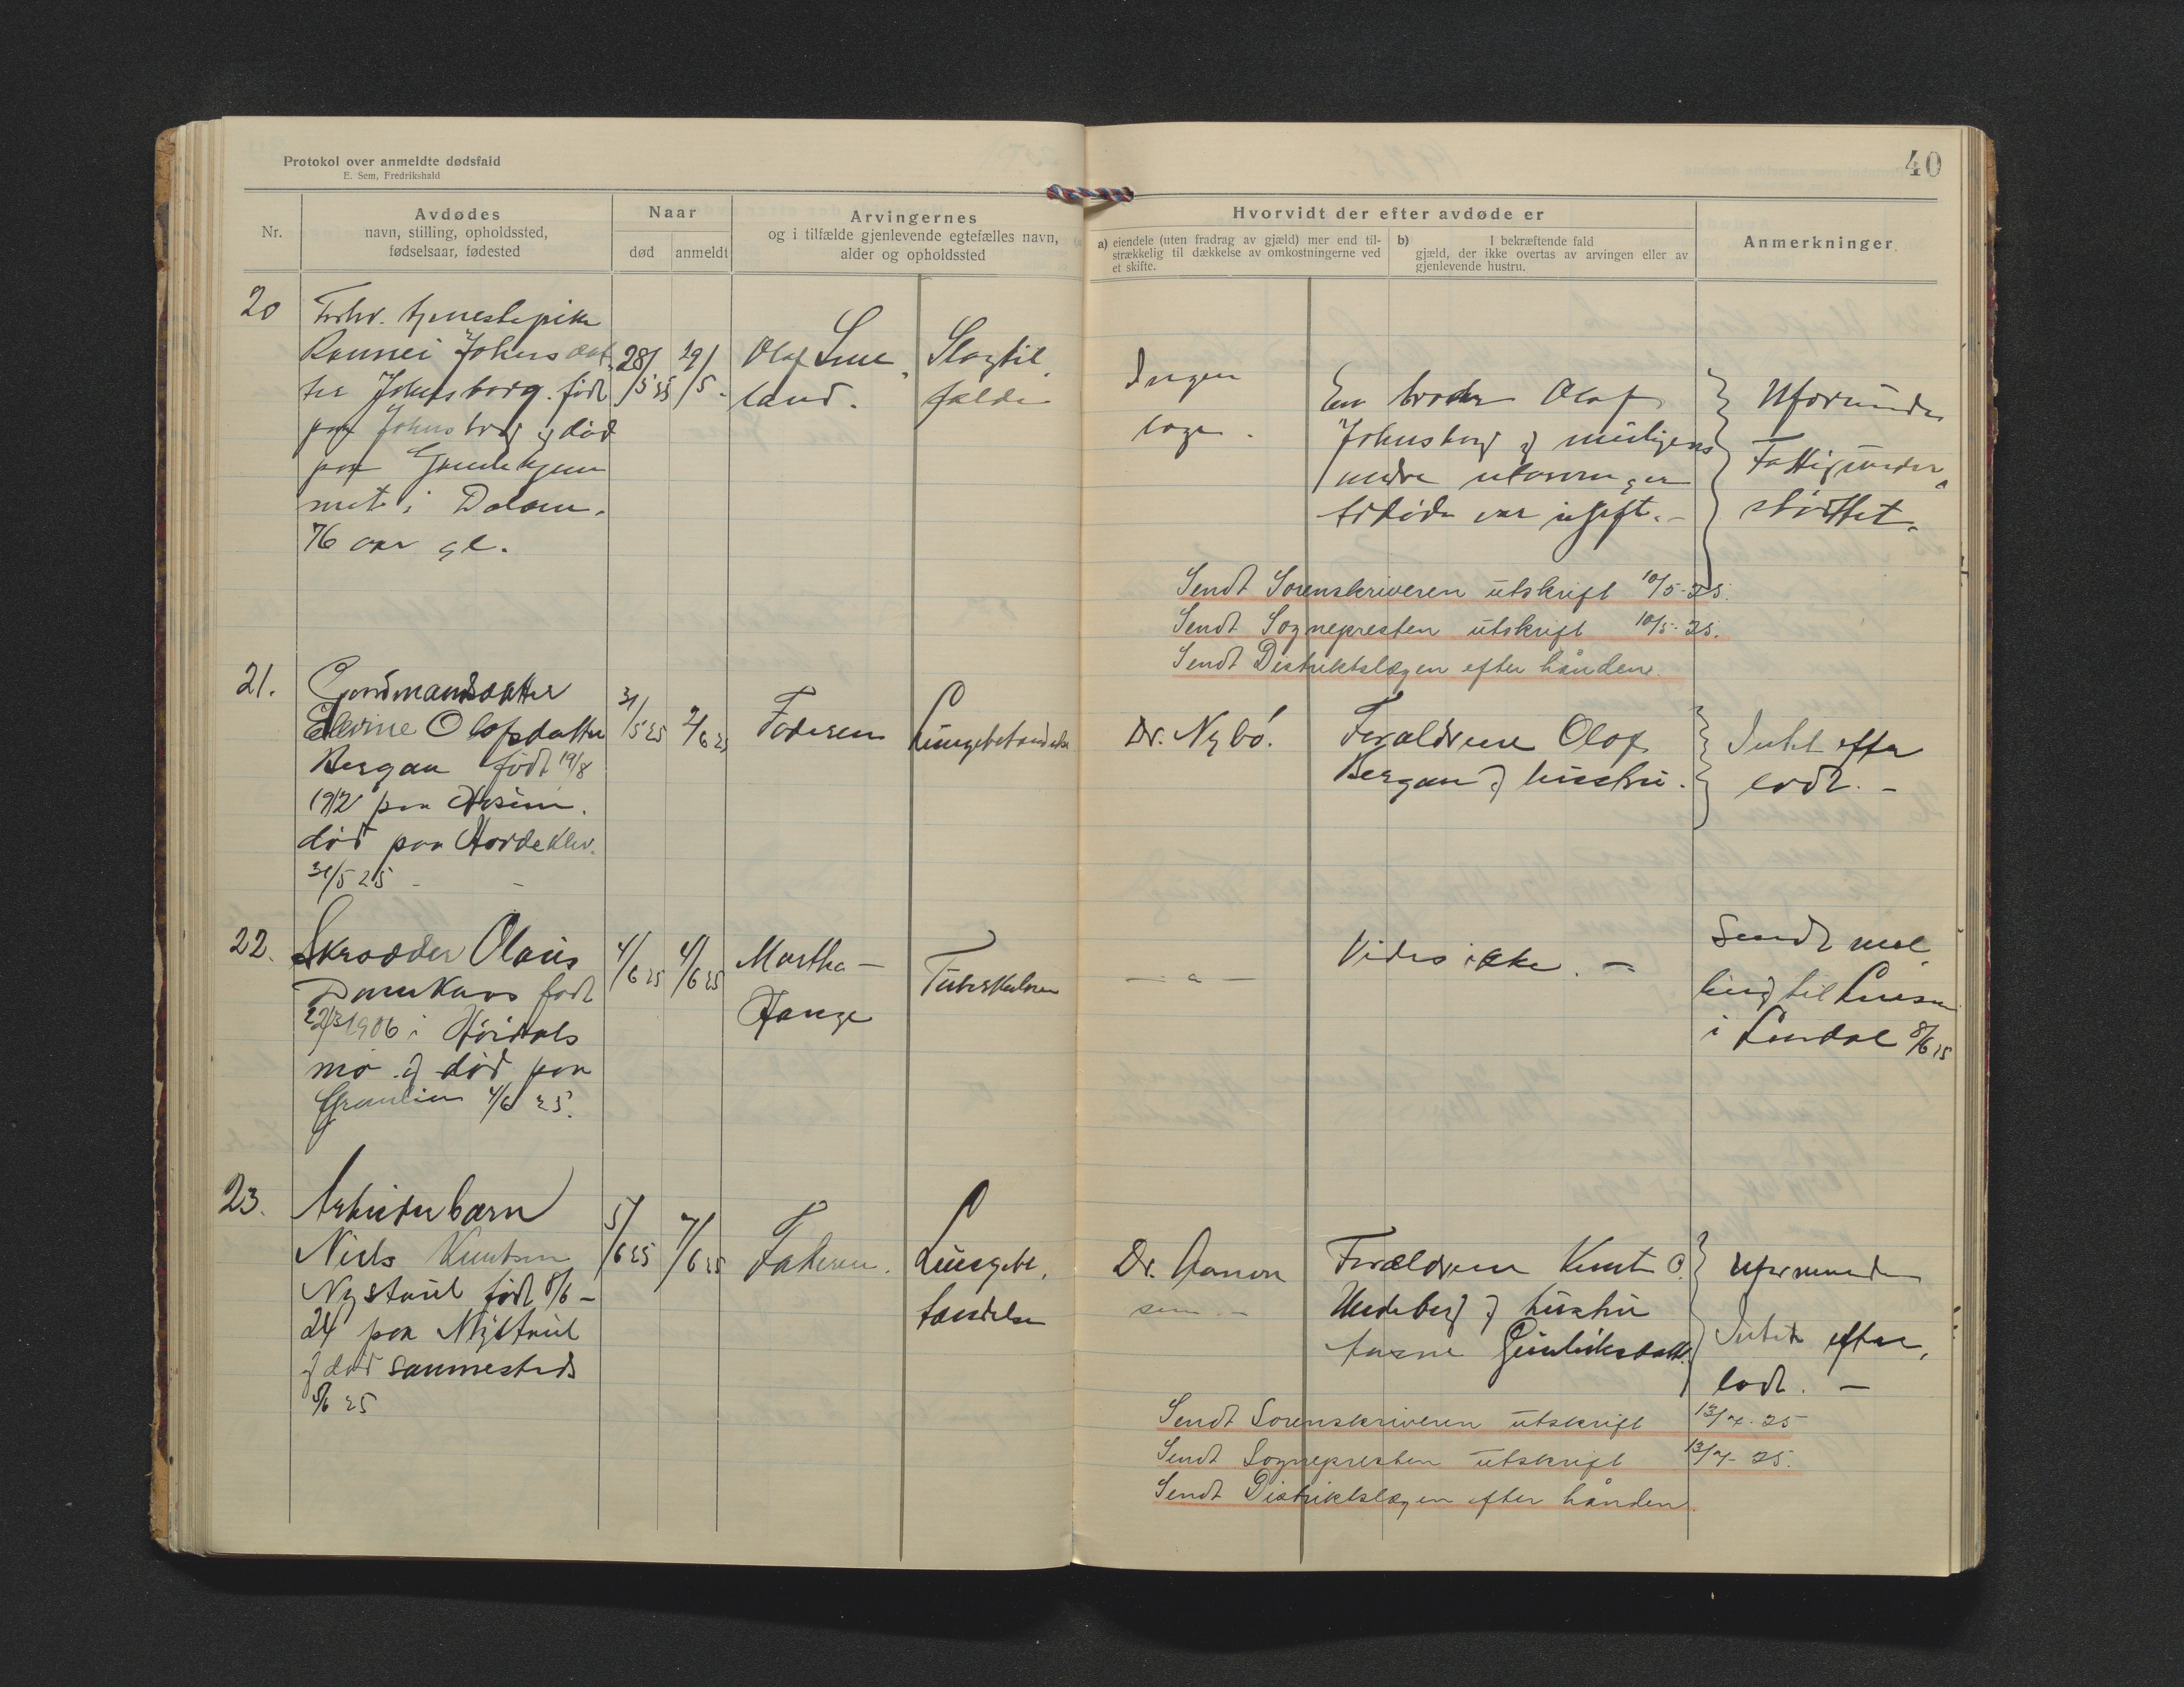 Protokol over anmeldte dødsfald
E. Sem, Fredrikshald
40
Nr.
Avdødes
navn, stilling, opholdssted,
fødselsaar, fødested
Naar
død
anmeldt
Arvingernes
og i tilfælde gjenlevende egtefælles navn,
alder og opholdssted
Hvorvidt der efter avdøde er
a) eiendele (uten fradrag av gjæld) mer end til-
strækkelig til dækkelse av omkostningerne ved
et skifte.
b) I bekræftende fald
gjæld, der ikke overtas av arvingen eller av
gjenlevende hustru.
Anmerkninger
20
Forhv. tjenestepike
Johnsdat
ter Johnsborg. født
paa Johnsborg og død
paa
met i Dalen.
76 aar gl.
28/5 25
29/5.
Olaf
land.
Slagtil
fælde
Ingen
læge.
En broder Olaf
Johnsborg og muligens
andre utarvinger
avdøde var ugift. -
Uformuende
Fattigunder
støttet.
Sendt Sorenskriveren utskrift 10/5-25.
Sendt Sognepresten utskrift 10/5-25.
Sendt Distriktslægen efter hånden.
21.
Gardmandsdatter
Olafsdatter
Bergan født 19/8
1912 paa
død paa Hordeklev.
31/5 25 -
31/5 25
2/6 25
Faderen
Lungebetændelse
Dr. Nybø.
Forældrene Olaf
Bergan og hustru.
Intet efter
ladt. -
22.
Skrædder Olaus
født
1906 i Høidals
mo og død paa
Granlien 4/6 25.
4/6 25
4/6 25
Martha
Hange
Tuberkulose
- " -
Vides ikke. -
Sendt mel
ding til
i 8/6 25
23.
Arbeiderbarn
Niels Knutsen
Nystaul født 8/6 -
24 paa Nystaul
og død sammesteds
5/6 25
5/6 25
7/6 25
Faderen.
Lungebe
tændelse
Dr. Aanon
sen. -
Forældrene Knut O.
og hustru
Gunleiksdatt.
Uformuende
Intet efter
ladt. -
Sendt Sorenskriveren utskrift 13/7-25
Sendt Sognepresten utskrift 13/7-25.
Sendt Distriktslægen efter hånden.